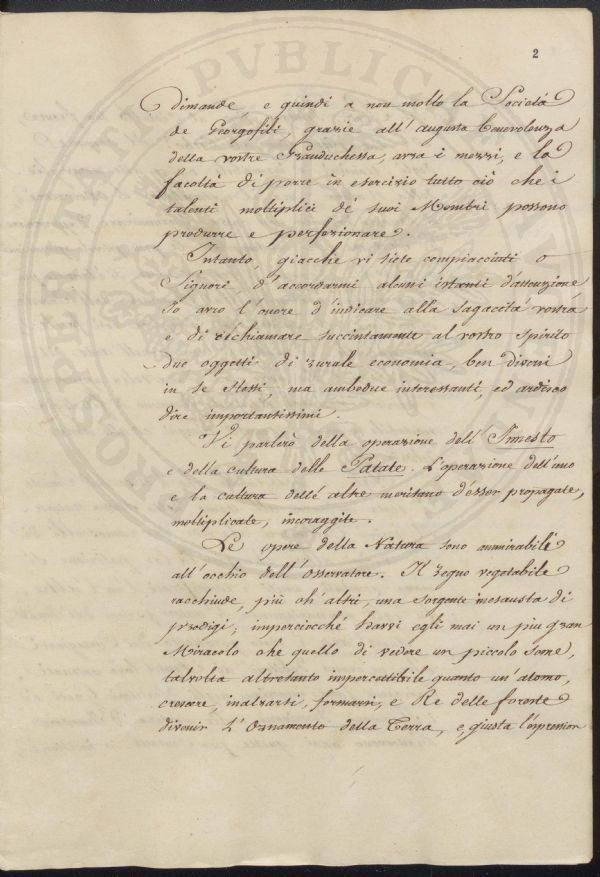 2
dimande, e quindi a non molto la Società
de Georgofili, grazie all'augusta benevolenza
della vostra Granduchessa, avra i mezzi, e la
facoltà di porre in esercizio tutto ciò che i
talenti moltiplici de suoi Membri possono
produrre e perfezionare.
Intanto, giacche vi siete compiacciuti o
Signori, d'accordarmi alcuni istanti d'attenzione
Io avro l'onore d'indicare alla sagacità vostra
e di richiamare succintamente al vostro spirito
due oggetti di rurale economia, ben diversi
in se stessi, ma ambedue interessanti, ed ardisco
dire importantissimi.
Vi parlerò della operazione dell'Innesto
e della cultura delle Patate. L'operazione dell'uno
e la cultura delle altre meritano d'esser propagate,
moltiplicate, incoraggite.
Le opere della Natura sono ammirabili
all'occhio dell'Osservatore. Il Regno vegetabile
racchiude, più ch'altri, una sorgente inesausta di
prodigi; imperciocché havvi egli mai un piu gran
Miracolo che quello di vedere un piccolo seme,
talvolta altretanto impercettibile quanto un'atomo,
crescere, inalzarsi, formarsi, e Re delle foreste
divenir l'Ornamento della Terra, e, giusta l'espression
PROSPERITATI PUBLICAE